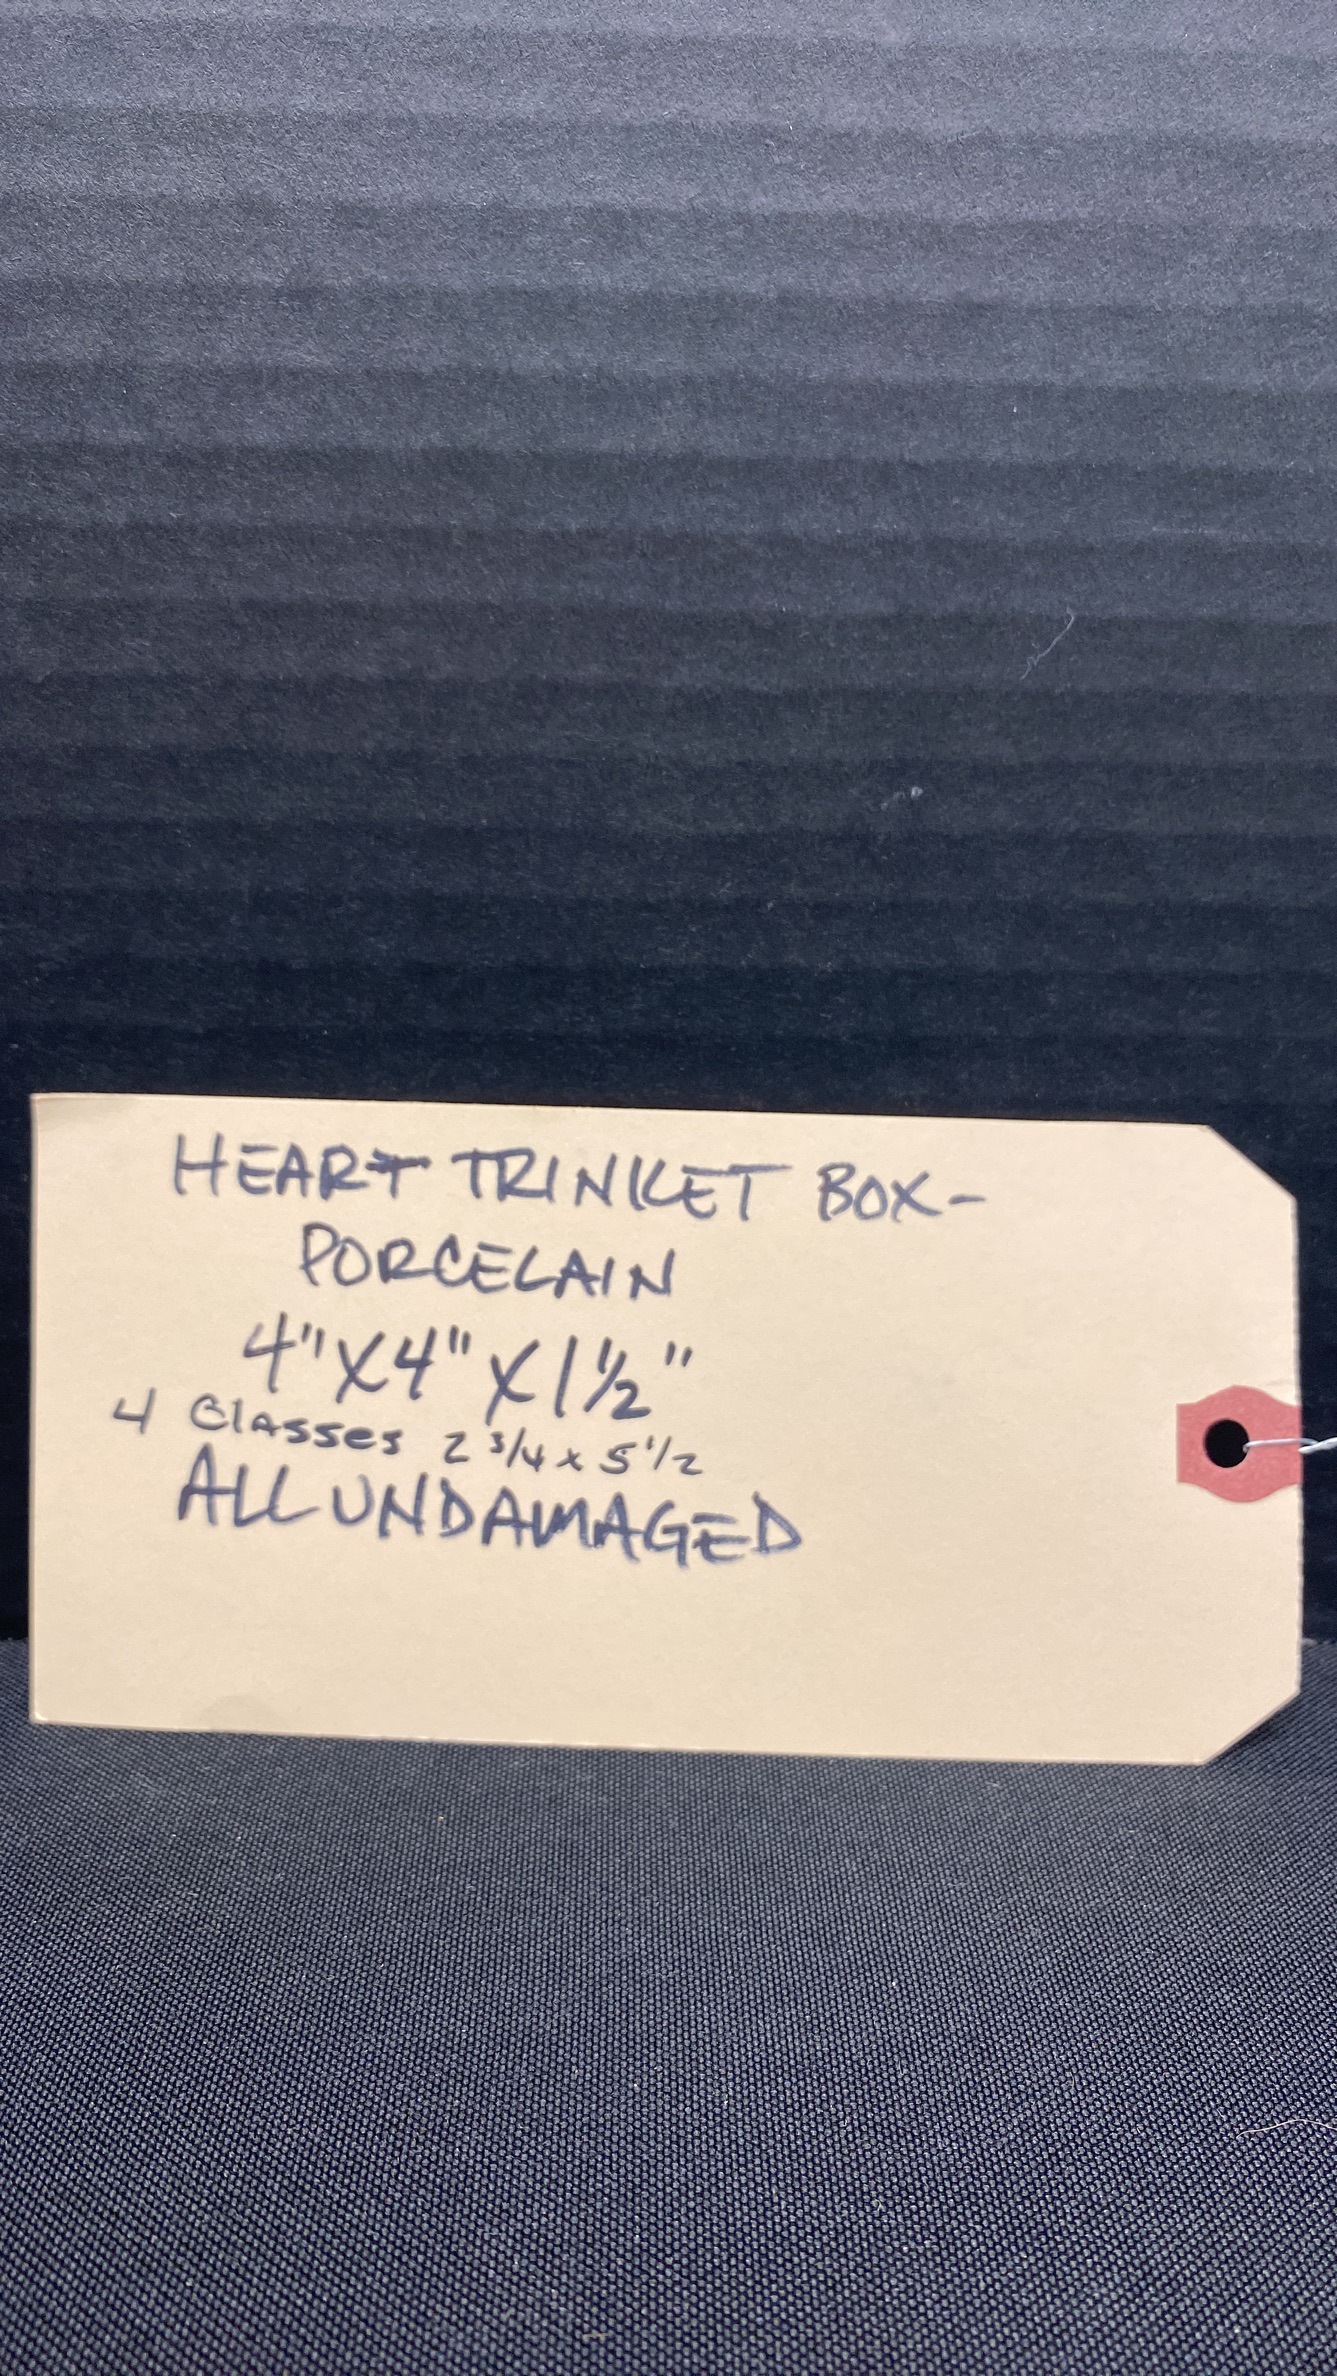 HEART TRINKET BOX-
PORCELAIN
4" X 4" X 1 1/2"
4 Glasses 2 3/4 x 5 1/2
ALL UNDAMAGED